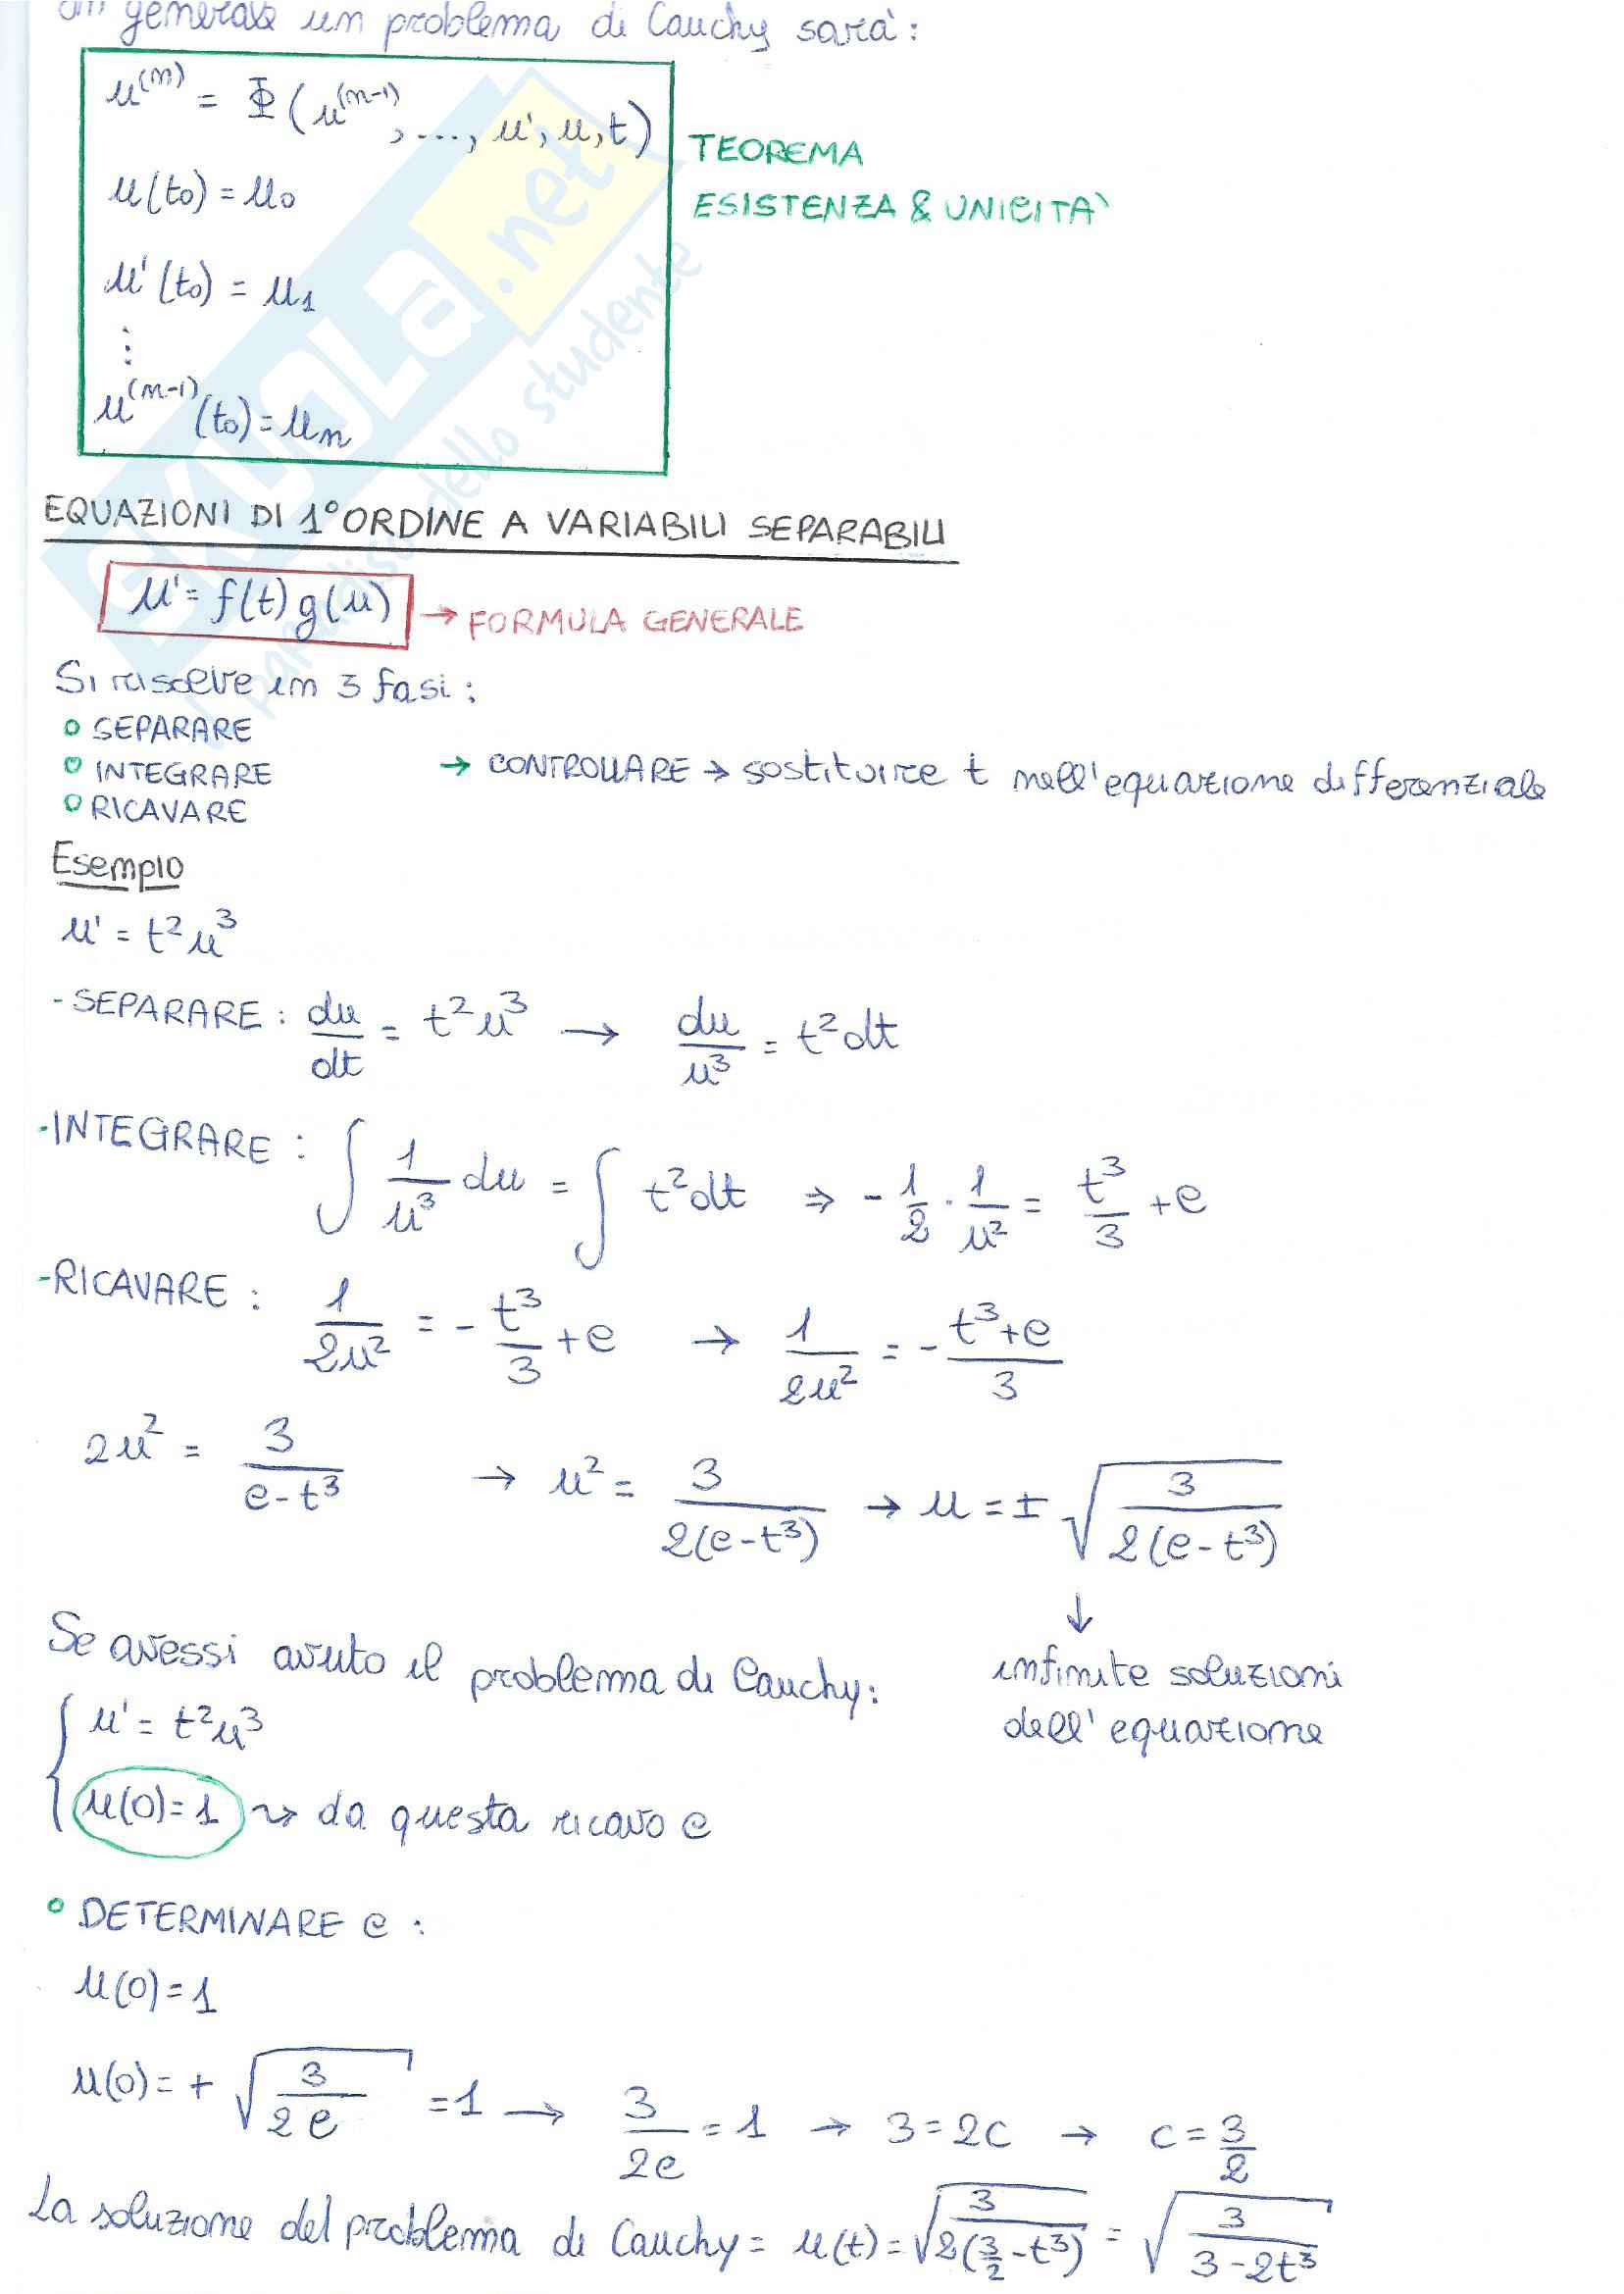 In generale un problema di Cauchy sarà:
u^(n) = Φ(u^(n-1), ..., u', u, t)
u(t₀) = u₀
u'(t₀) = u₁
⋮
u^(n-1)(t₀) = uₙ
TEOREMA
ESISTENZA & UNICITA'
EQUAZIONI DI 1° ORDINE A VARIABILI SEPARABILI
u' = f(t) g(u) → FORMULA GENERALE
Si risolve in 3 fasi:
∘ SEPARARE
∘ INTEGRARE → CONTROLLARE → sostituire t nell'equazione differenziale
∘ RICAVARE
Esempio
u' = t²u³
- SEPARARE: du/dt = t²u³ → du/u³ = t²dt
- INTEGRARE: ∫ 1/u³ du = ∫ t²dt ⇒ - 1/2 · 1/u² = t³/3 + c
- RICAVARE: 1/2u² = - t³/3 + c → 1/2u² = - (t³+c)/3
2u² = 3/(c-t³) → u² = 3/(2(c-t³)) → u = ± √(3/(2(c-t³)))
↓
infinite soluzioni
dell'equazione
Se avessi avuto il problema di Cauchy:
{ u' = t²u³
u(0) = 1 ⇝ da questa ricavo c
∘ DETERMINARE c:
u(0) = 1
u(0) = + √(3/2c) = 1 → 3/2c = 1 → 3 = 2c → c = 3/2
La soluzione del problema di Cauchy = u(t) = √(3/(2(3/2 - t³))) = √(3/(3-2t³))
SKUOLA.net
il paradiso dello studente